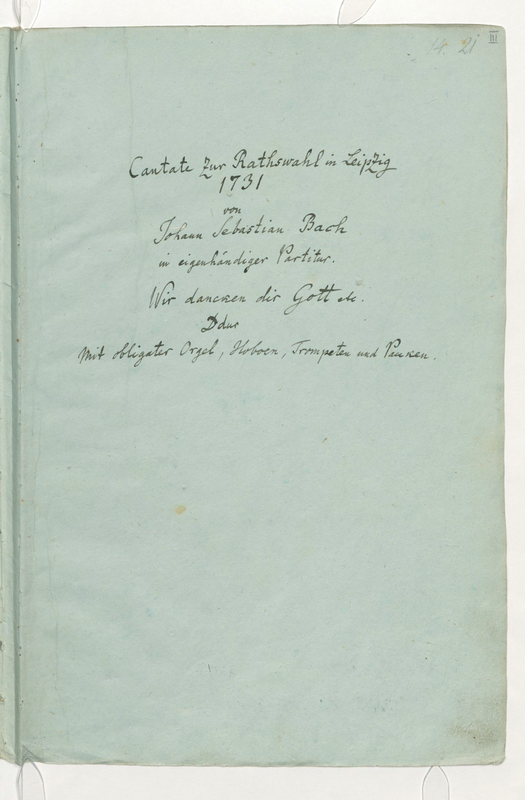 14. 21
III
Cantate zur Rathswahl in Leipzig
1731
von
Johann Sebastian Bach
in eigenhändiger Partitur.
Wir dancken dir Gott etc.
D dur
Mit obligater Orgel, Hoboen, Trompeten und Pauken.